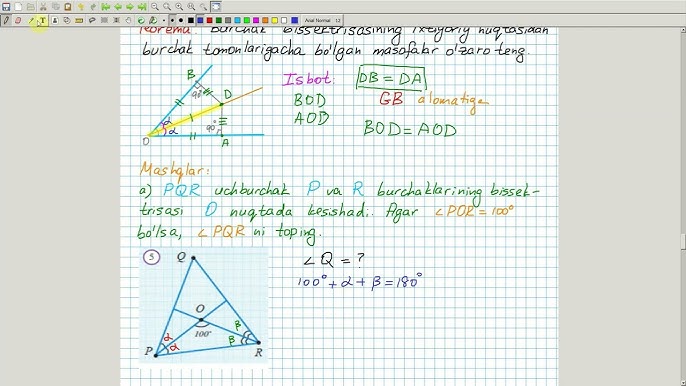 Arial Normal 12
Teorema: Burchak bissektrisasining ixtiyoriy nuqtasidan
burchak tomonlarigacha bo'lgan masofalar o'zaro teng.
B
90°
D
α
α
O
90°
A
Isbot:
DB = DA
BOD
GB alomatiga
AOD
BOD = AOD
Mashqlar:
a) PQR uchburchak P va R burchaklarining bissek-
trisasi O nuqtada kesishadi. Agar ∠POR = 100°
bo'lsa, ∠PQR ni toping.
5
Q
O
100°
α
α
β
β
P
R
∠Q = ?
100° + α + β = 180°